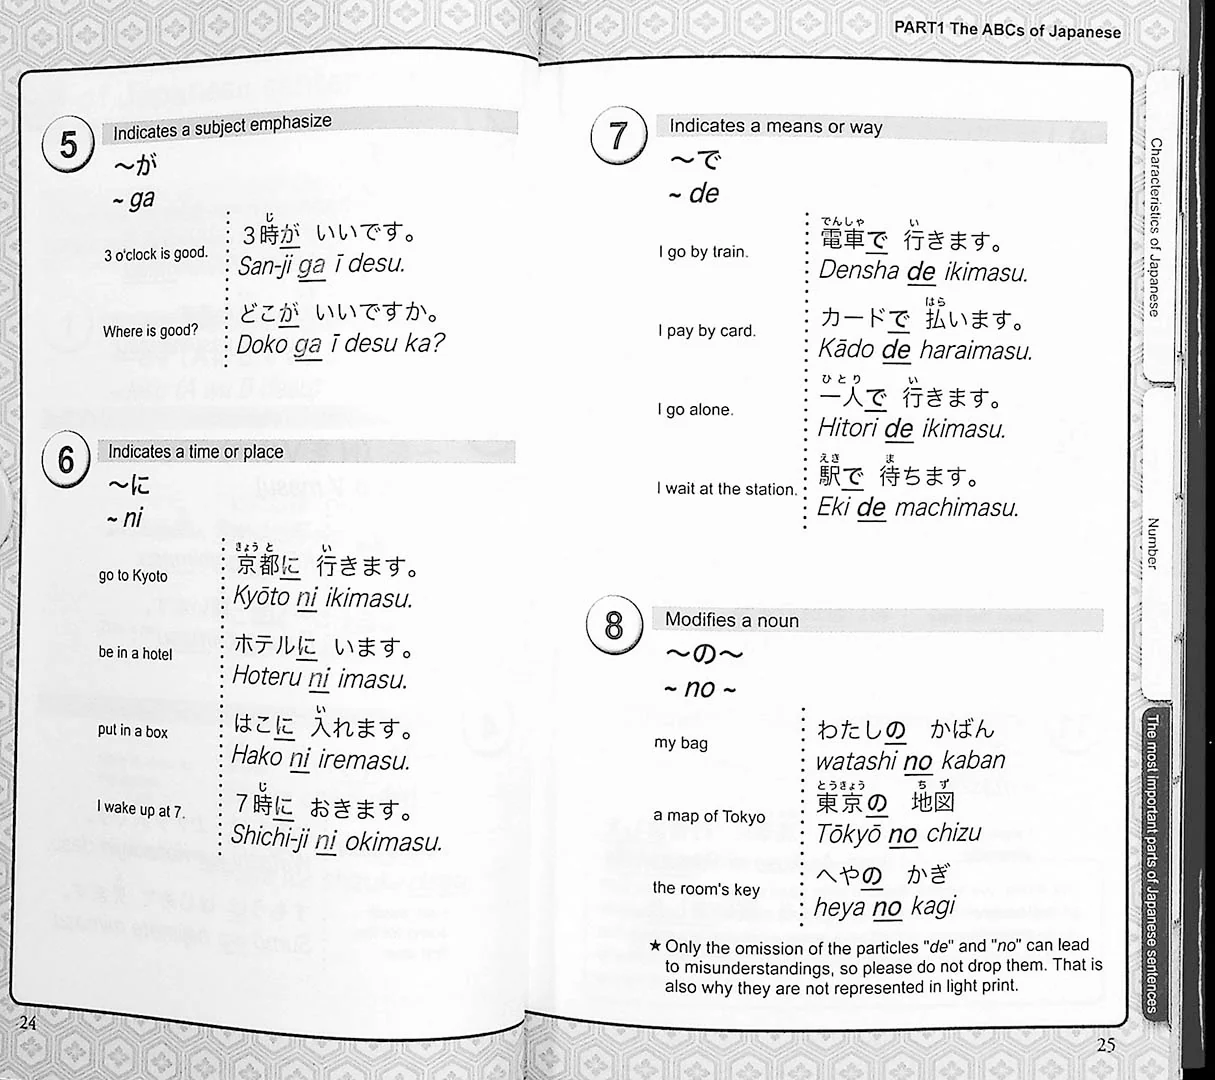 PART1 The ABCs of Japanese
5
Indicates a subject emphasize
〜が
~ ga
3 o'clock is good.
じ
3時が いいです。
San-ji ga ī desu.
Where is good?
どこが いいですか。
Doko ga ī desu ka?
6
Indicates a time or place
〜に
~ ni
go to Kyoto
きょう と い
京都に 行きます。
Kyōto ni ikimasu.
be in a hotel
ホテルに います。
Hoteru ni imasu.
put in a box
い
はこに 入れます。
Hako ni iremasu.
I wake up at 7.
じ
7時に おきます。
Shichi-ji ni okimasu.
24
7
Indicates a means or way
〜で
~ de
I go by train.
でんしゃ い
電車で 行きます。
Densha de ikimasu.
I pay by card.
はら
カードで 払います。
Kādo de haraimasu.
I go alone.
ひとり い
一人で 行きます。
Hitori de ikimasu.
I wait at the station.
えき ま
駅で 待ちます。
Eki de machimasu.
8
Modifies a noun
〜の〜
~ no ~
my bag
わたしの かばん
watashi no kaban
a map of Tokyo
とうきょう ち ず
東京の 地図
Tōkyō no chizu
the room's key
へやの かぎ
heya no kagi
★Only the omission of the particles "de" and "no" can lead
to misunderstandings, so please do not drop them. That is
also why they are not represented in light print.
25
Characteristics of Japanese
Number
The most important parts of Japanese sentences